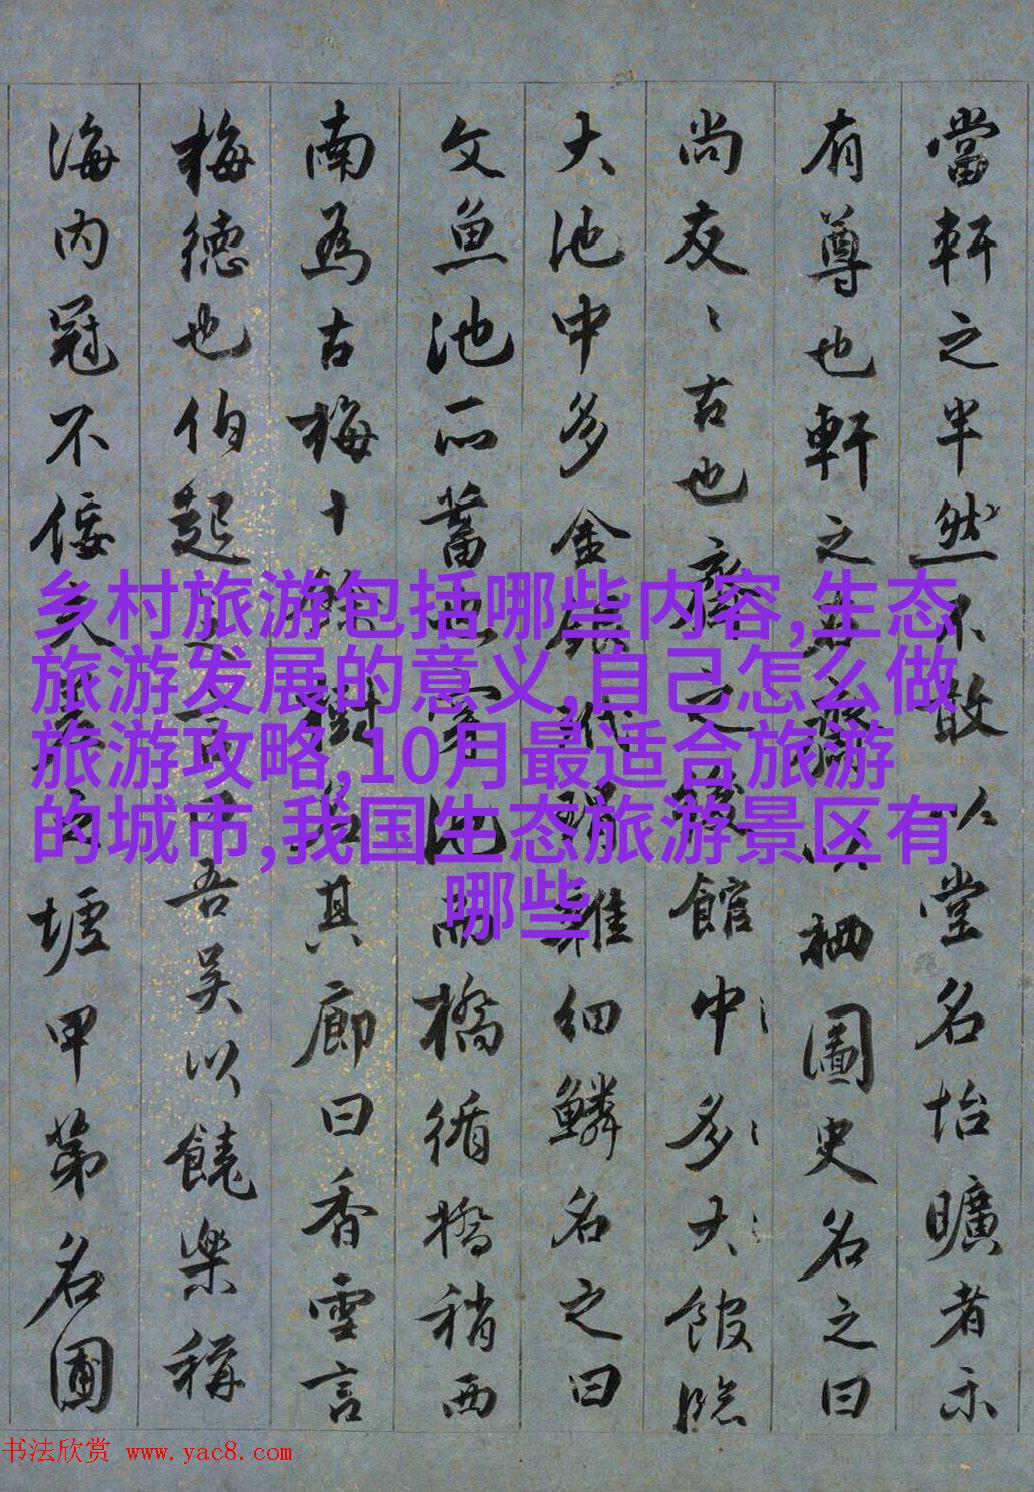 當軒之半然不敢以堂名怡曠者示
有尊也軒之齋以栖圖史名之曰
尚友〻古也齋之後館中多大館臨
大池中多金玳瑁雜細鱗名之曰
文魚池所蓄也池而橋循橋稍西
南為古梅十餘樹名其廊曰香雪言
梅德也伯起吾吳以饒樂稱
海內冠不佞塘甲第名圃
乡村旅游包括哪些内容,生态
旅游发展的意义,自己怎么做
旅游攻略,10月最适合旅游
的城市,我国生态旅游景区有
哪些
书法欣赏 www.yac8.com